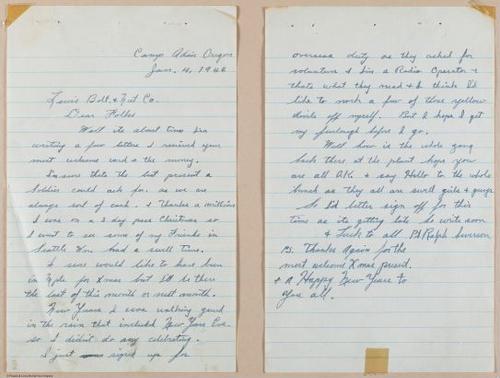 Camp Adair Oregon
Jan. 4, 194
Lewis Bolt & Nut Co.
Dear Folks
Well its about time Im
writing a few letters I received your
most welcome card & the money.
Im sure thats the best present a
Soldier could ask for. as we are
always sort of cash. & Thanks a million
I was on a 3 day pass Christmas so
I went to see some of my Friends in
Seattle Wn. had a swell time.
I sure would like to have been
in Mpls for Xmas but Ill be there
the last of this month or next month.
New Years I was walking guard
in the rain that included New Years Eve.
so I didn't do any celebrating.
I just signed up for
overseas duty as they asked for
volunteers & Im a Radio Operator &
thats what they need & I think Id
like to work a few of those yellow
devils off myself. But I hope I get
my furlough before I go.
Well how is the whole gang
back there at the plant hope you
are all O.K. & say Hello to the whole
bunch as they all are swell girls & guys.
So Id better sign off for this
time as its getting late. So write soon
& Luck to all Pvt Ralph
P.S. Thanks Again for the
most welcome Xmas present.
& A Happy New Years to
You all.